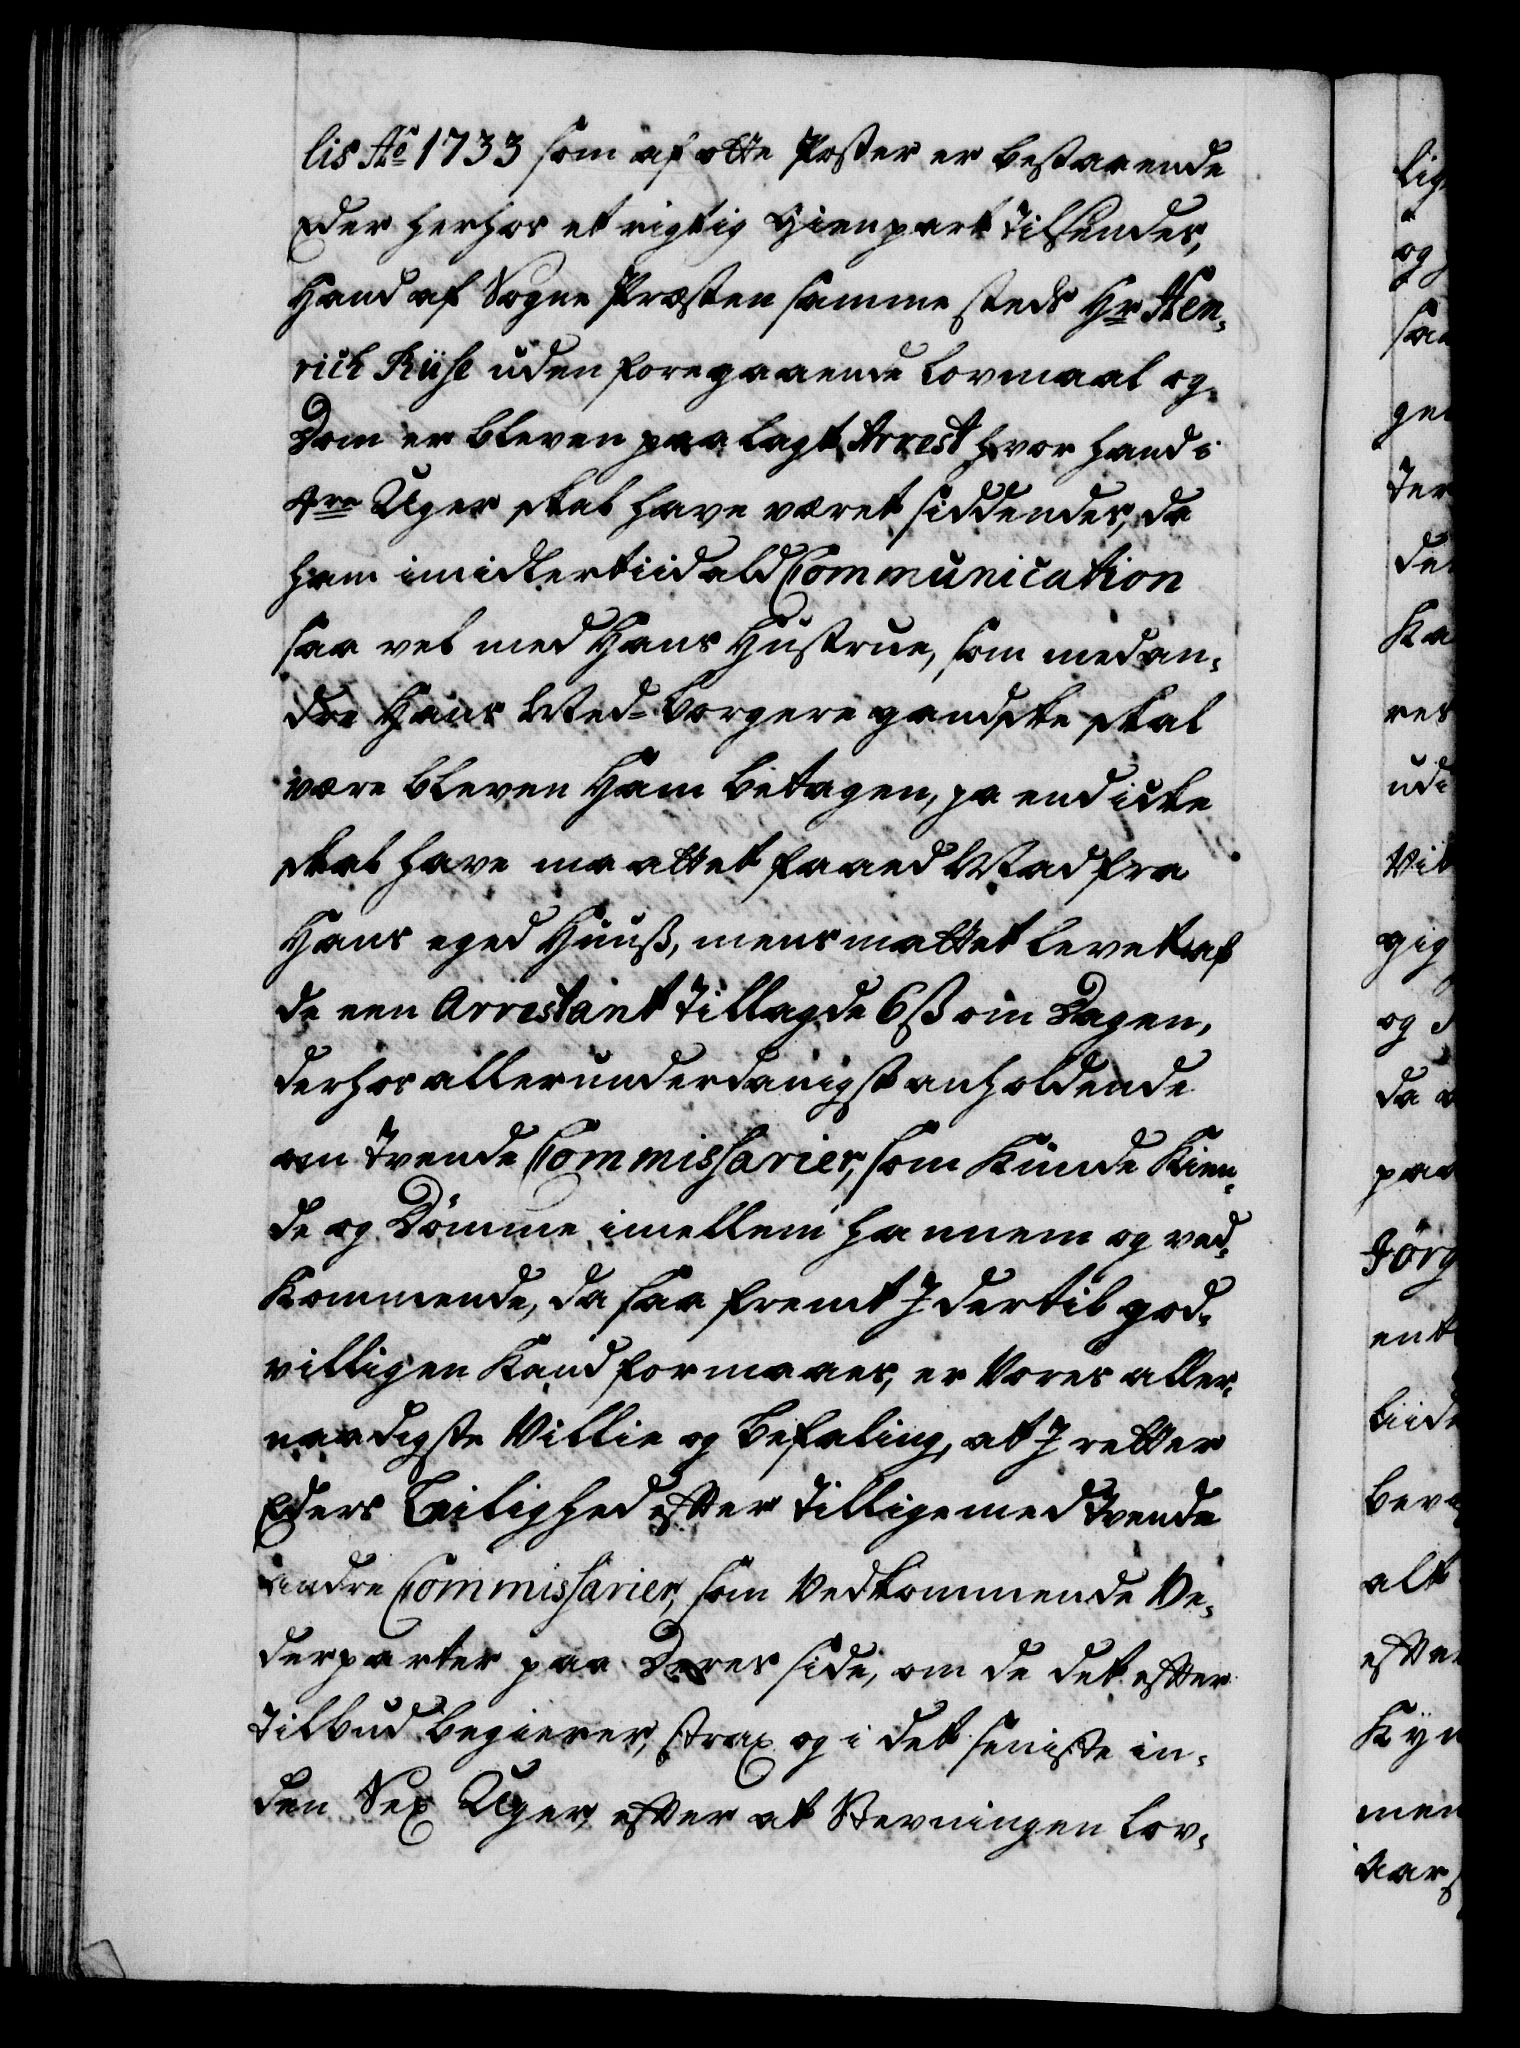 lis Ao 1733 som af otte Poster er bestaaende
Eder herhos et rigtig Gienpart tilsendes,
Hand af Sogne Præsten sammesteds Hr Hen-
rich Küse uden foregaaende Lovmaal og
Dom er bleven paalagt Arrest hvor hand i
4re Uger skal have været siddendes, da
ham imidlertiid ald Communication
saa vel med Hans Hustrue, som med an-
dre Hans Med-borgere gandske skal
være bleven Ham betagen, ja end icke
skal have maattet faaed Mad fra
Hans eged Huuß, mens mattet levet af
de een Arrestant tillagde 6 ß om Dagen,
derhos allerunderdanigst anholdende
om tvende Commissarier, som kunde kien-
de og Dömme imellem hannem og ved-
kommende, da saa fremt I dertil god-
villigen kand formaaes, er Vores aller-
naadigste Villie og Befaling, at I retter
Eders Leilighed efter tilligemed tvende
andre Commissarier, som Vedkommende Ve-
derparter paa Deres side, om de det efter
tilbud begierer, strax og i det seniste in-
den Sex Uger, efter at Stevningen lov-